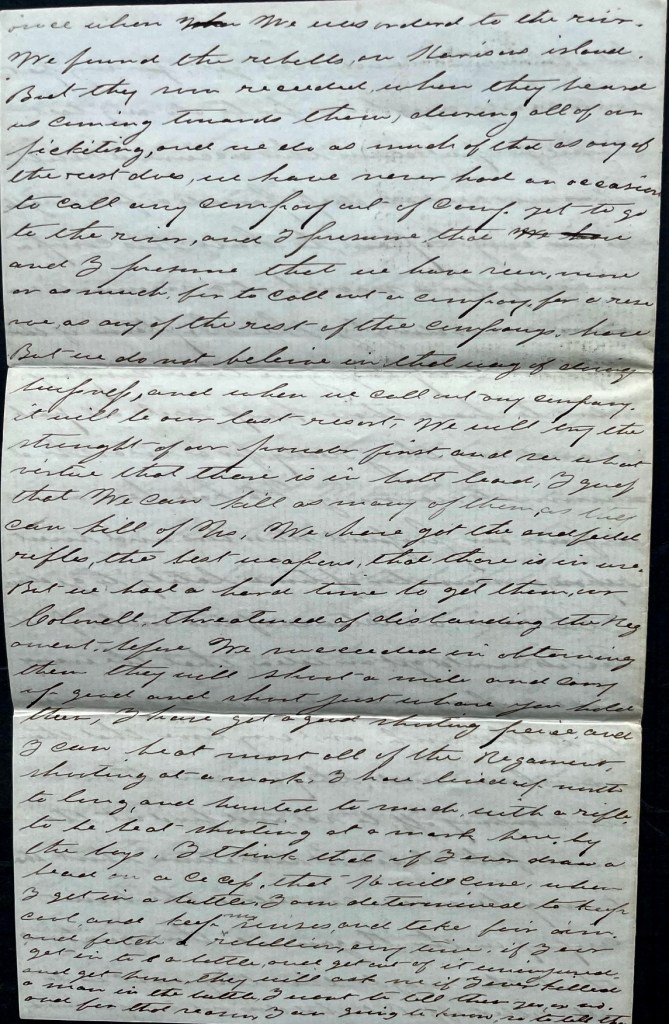 once when We was ordered to the river.
We found the rebells, on Harisons island.
But they soon receeded, when they heard
us coming towards them, during all of our
picketing, and we do as much of that as any of
the rest does, we have never had an occasion
to call any company out of camp. yet to go
to the river, and I presume that
and I presume that we have seen, more
or as much, for to call out a company, for a rese
we, as any of the rest of the companys. have
But we do not beleive in that way of doing
buisness, and when we call out any company.
it will be our last resort, We will try the
strenght of our powder first, and see what
virtue that there is in hott lead, I guess
that We can kill as many of them, as they
can kill of Us, We have got the endfield
rifles, the best weapons, that there is in use.
But we had a hard time to get them, our
Colonell, threatened of disbanding the Reg
ament. before We succeeded in obtaining
them they will shoot a mile and carry
up good and shoot just where you hold
them, I have got a good shooting peice, and
I can beat most all of the Regament,
shooting at a mark. I have lived up north
to long, and hunted to much, with a rifle.
to be beat shooting at a mark here, by
the boys, I think that if I ever draw a
bead on a that when
I get in a battle, I am determined to keep
cool, and keep my senses, and take fair aim.
and fetch a rebellion, any time, if I ever
get in to a battle, and get out of it uninjured,
and get home, they will ask me if I ever killed
a man in the battle, I want to tell them yes, or no.
and for that reason, I am going to know, so to tell the